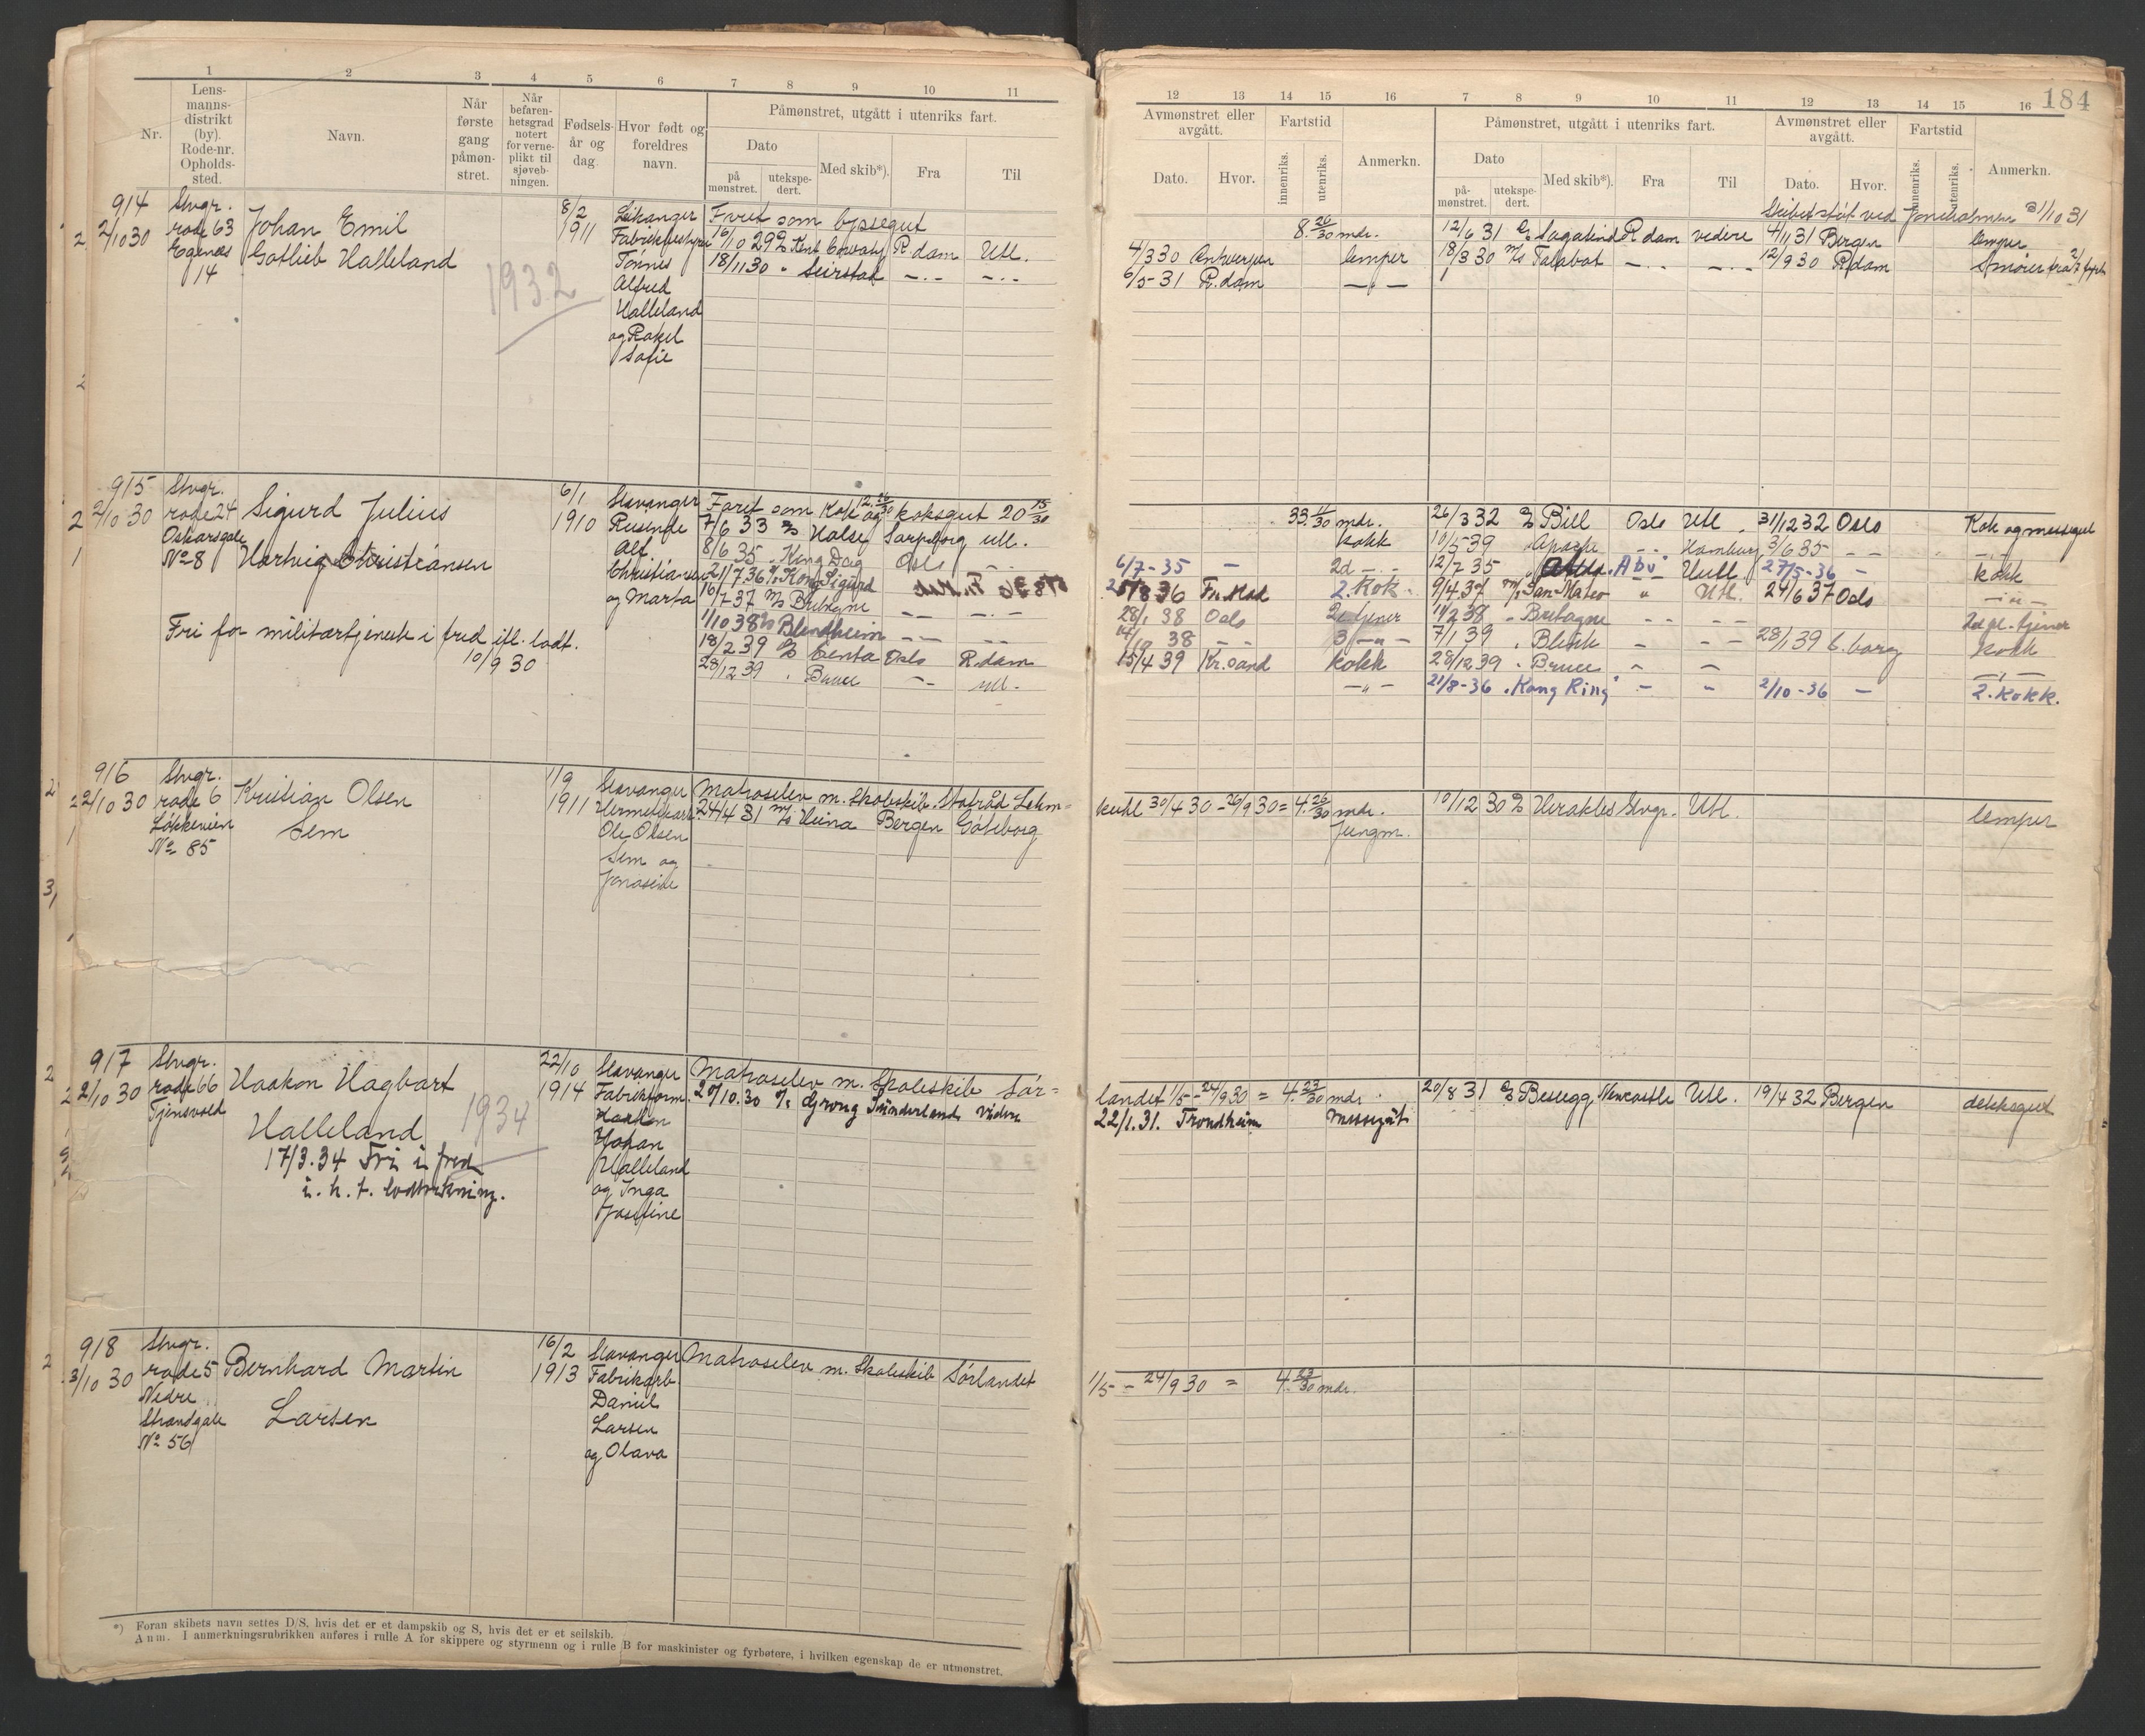 184
1 2 3 4 5 6 7 8 9 10 11
Nr.
Lens-
manns-
distrikt
(by).
Rode-nr.
Opholds-
sted.
Navn.
Når
første
gang
påmøn-
stret.
Når
befaren-
hetsgrad
notert
for verne-
plikt til
sjøveb-
ningen.
Fødsels-
år og
dag.
Hvor født og
foreldres
navn.
Påmønstret, utgått i utenriks fart.
Dato
på
mønstret.
utekspe-
dert.
Med skib*).
Fra
Til
12 13 14 15 16 7 8 9 10 11 12 13 14 15 16
Avmønstret eller
avgått.
Dato.
Hvor.
Fartstid
innenriks.
utenriks.
Anmerkn.
Påmønstret, utgått i utenriks fart.
Dato
på-
mønstret.
utekspe-
dert.
Med skib*).
Fra
Til
Avmønstret eller
avgått.
Dato.
Hvor.
Fartstid
innenriks.
utenriks.
Anmerkn.
914
2/10 30
Stvgr.
rode 63
Egenæs
14
Johan Emil
Gotlieb Halleland
1932
8/2
1911
Leikanger
Tønnes
Alfred
Halleland
og Rakel
Sofie
Farit som byssegut 8 26/30 mdr.
16/10 29 R dam Utl. 4/3 30 Antwerpen lemper
18/11 30 " Seirstad -"- -"- 6/5-31 R.dam -"-
12/6 31 Sagatind R dam videre 4/11 31 Bergen lemper
18/3 30 M/S Talabot -"- -"- 12/9 30 R.dam
915
2/10 30
Stvgr.
rode 24
Oskarsgate
No 8
Sigurd Julius
Hartvig Christiansen
Fri for militærtjeneste i fred ifl. lodt.
10/9 30
6/1
1910
Stavanger
Alf
Christiansen
og Marta
Farit som kok 12 26/30 og koksgut 20 15/30 33 11/30 mdr.
7/6 33 Halse Sarpsborg utl. kokk
8/6 35 " King Dag Oslo -"- 6/7-35 - 2d -"-
21/7 36 Kong Sigurd Fr. stad 2. kok
16/7 37 M/S Bretagne -"- -"- 28/1 38 Oslo
1/10 38 Blindheim -"- -"- 3 -"-
18/2 39 Centa Oslo R.dam 15/4 39 Kr.sand kokk
28/12 39 " Bruce -"- utl. -"-
26/3 32 Bill Oslo Utl. 31/12 32 Oslo Kok og messegut
10/5 39 " Apache -"- Hamburg 3/6 35 - - -"-
12/7 35 " Abu -"- Uutl. 27/5-36 - kokk
9/4 37 M/S San Mateo " Utl. 24/6 37 Oslo -"-
11/2 38 " Bretagne - - - -
7/1 39 " Blink - - 28/1 39 kokk
28/12 39 " Bruce - - -"-
21/8-36 " Kong Ring - - 2/10-36 - 2. kokk.
916
2/10 30
Stvgr.
rode 6
Løkkeveien
No 85
Kristian Olsen
Sem
1/9
1911
Stavanger
Hermetikarb.
Ole Olsen
Sem og
Matroselev m. Skoleskib. Statsråd Lehm=
kuhl 30/4 30 - 26/9 30 = 4 26/30 mdr.
24/4 31 M/S Heina Bergen Göteborg Jungm.
10/12 30 Herakles Stvgr. Utl. lemper
917
2/10 30
Stvgr.
rode 66
Tjensvold
Haakon Hagbart
Halleland
1934
17/3.34 Fri i fred
i. h. t. lodtrekning.
22/10
1914
Stavanger
Fabrikform.
Haakon
Johan
Halleland
og Inga
Jossine
Matroselev m. Skoleskib Sør=
landet 1/5 - 24/9 30 = 4 23/30 mdr.
20/10.30 Grong Sunderland Videre 22/1.31. Trondheim Messegut
20/8 31 Besegg Newcastle Utl. 19/4 32 Bergen dekksgut
918
3/10 30
Stvgr.
rode 5
Nedre
Strandgate
No 56
Bernhard Martin
Larsen
16/2
1913
Stavanger
Fabrikarb.
Daniel
Larsen
og Olava
Matroselev m. Skoleskib Sørlandet
1/5 - 24/9 30 = 4 23/30 mdr.
*) Foran skibets navn settes D/S, hvis det er et dampskib og S, hvis det er et seilskib.
Anm. I anmerkningsrubrikken anføres i rulle A for skippere og styrmenn og i rulle B for maskinister og fyrbøtere, i hvilken egenskap de er utmønstret.